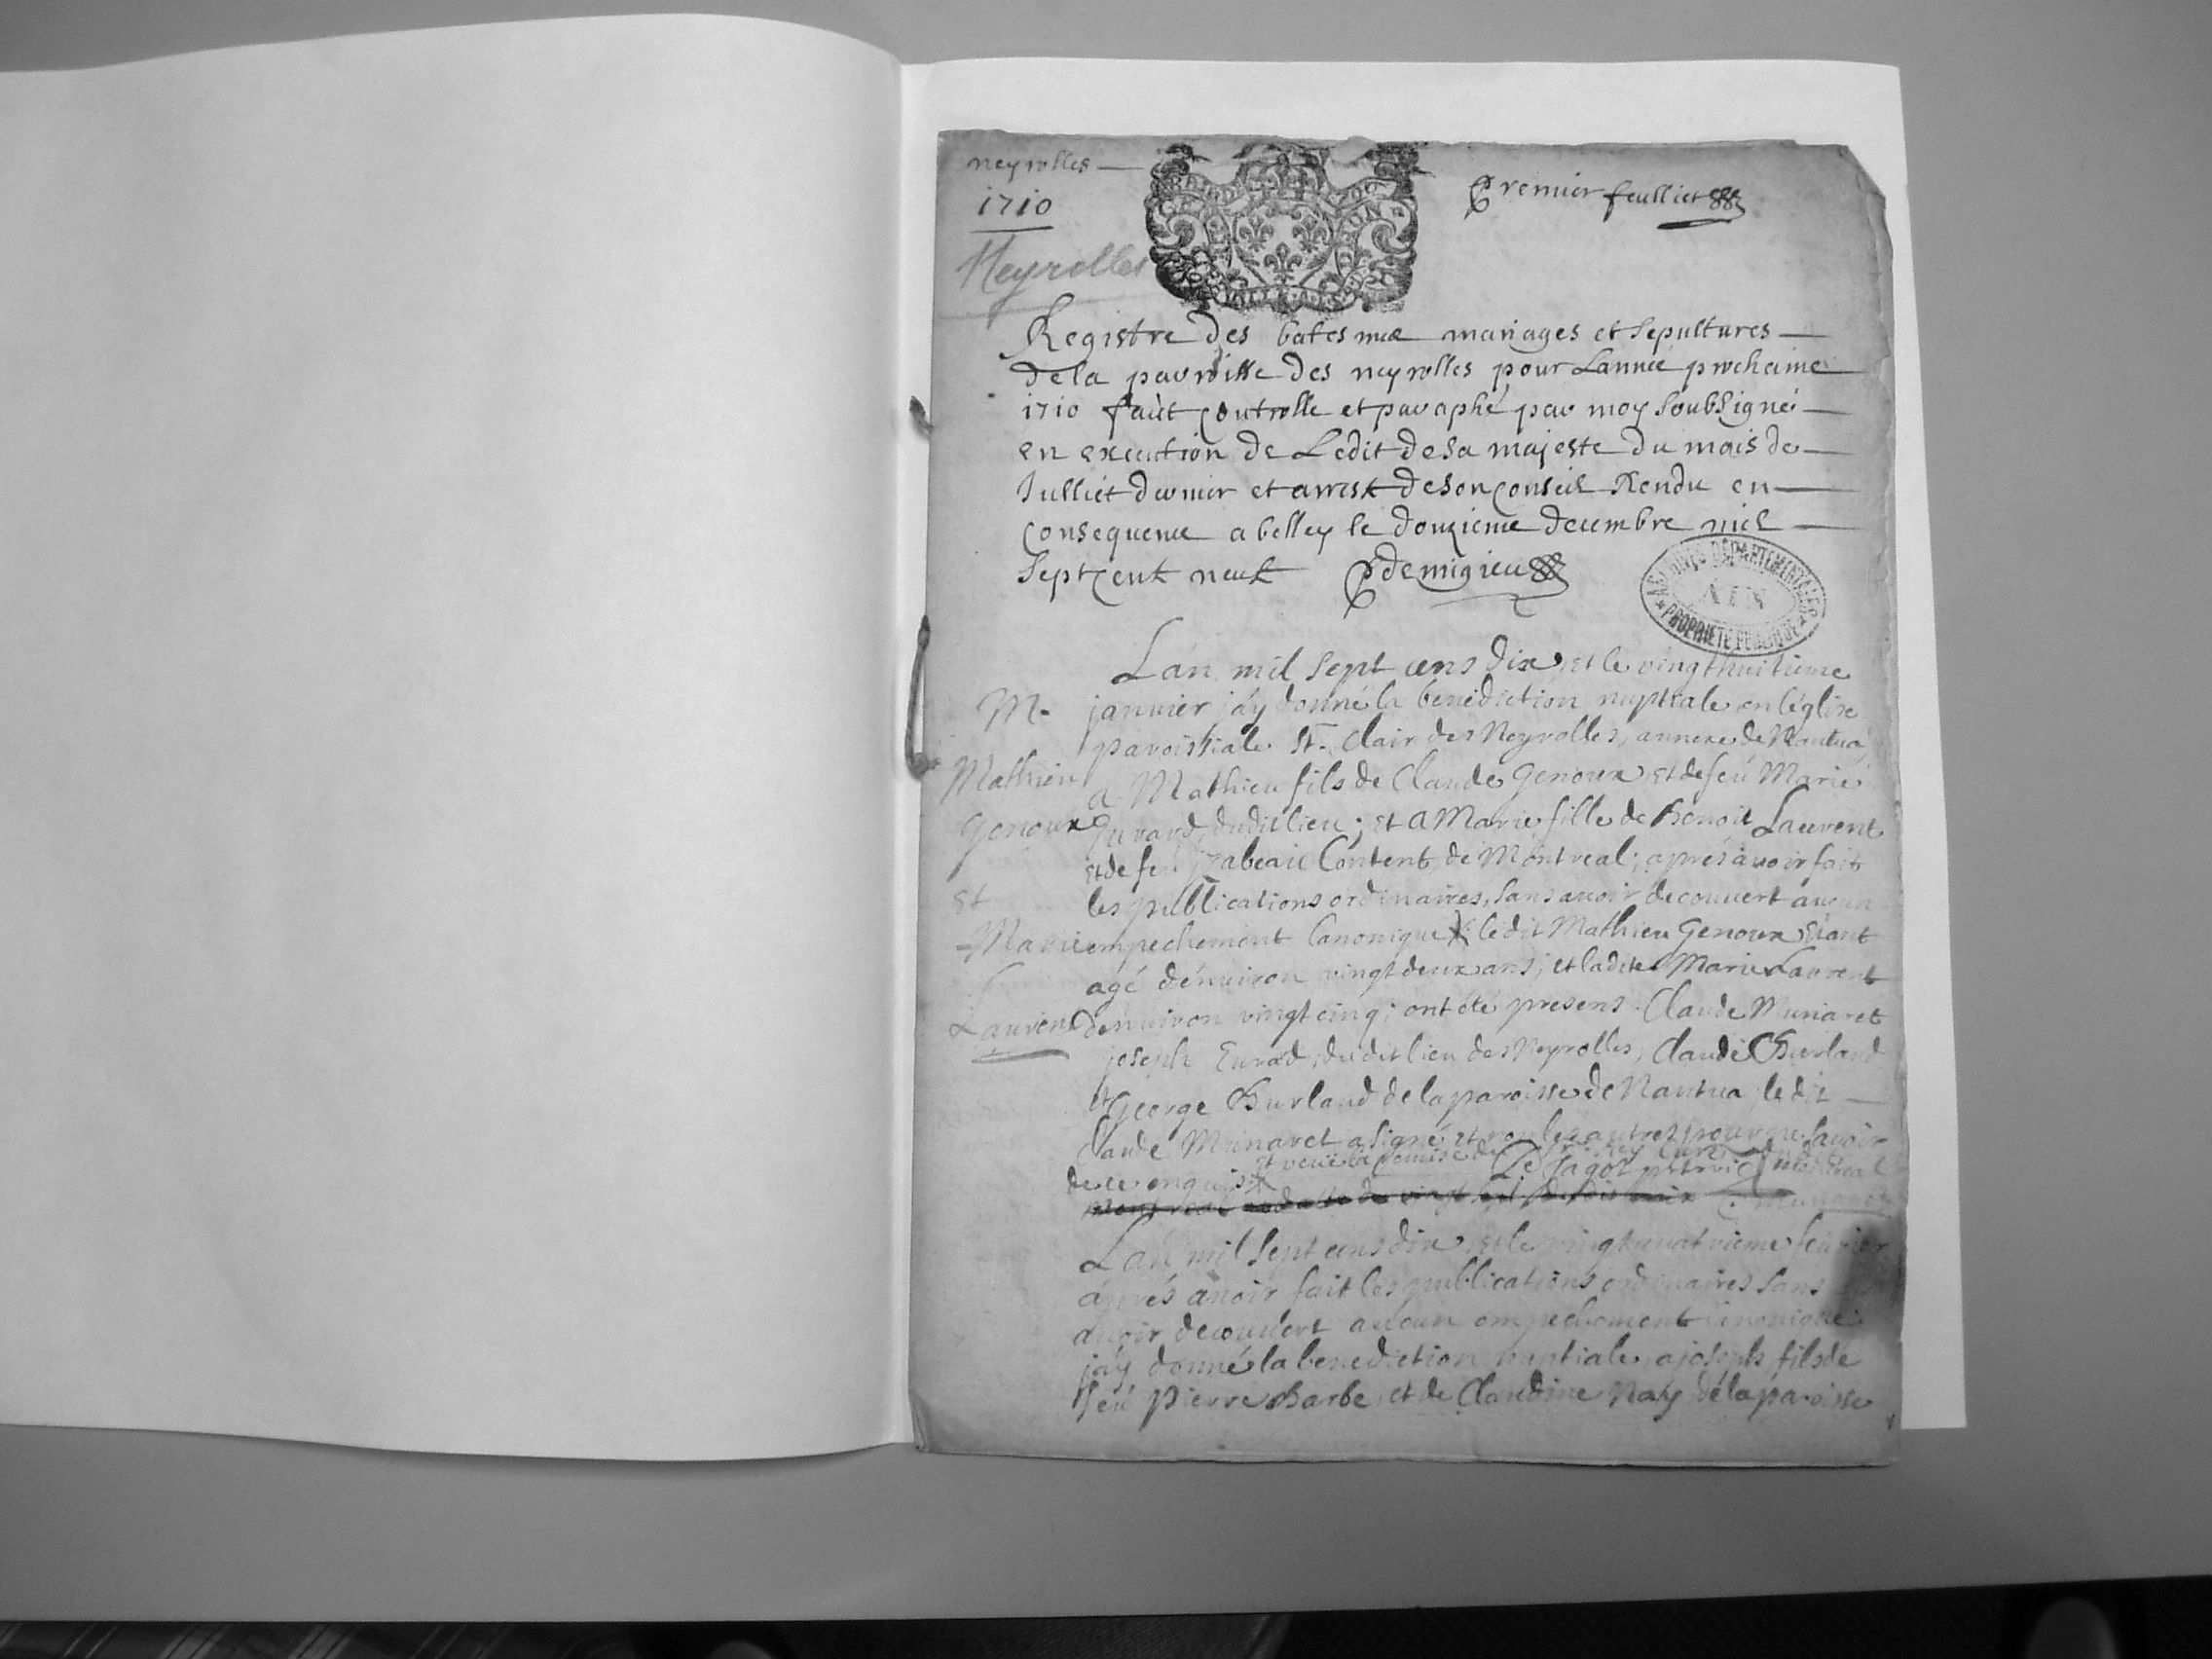 neyrolles
1710
Neyrolles
Premier feulliet
Registre des batesmes mariages et sepultures
de la parroisse des neyrolles pour Lannée prochaine
1710 Coutrolle et paraphé par moy soubsigné
en execution de Ledit de sa majeste du mois de
Julliet dernier et arrest de son Conseil Rendu en
Consequence a belley le douzieme decembre miel
Sept Cent neuf demigieu
ARCHIVES DEPARTEMENTALES
AIN
PROPRIETE PUBLIQUE
Lan mil sept cens dix, et le vingthuitieme
M. janvier j'ay donné la benediction nuptiale en léglise
paroissiale St. Clair des Neyrolles, annexe de Nantua,
Mathieu a Mathieu fils de Claude Genoux et de feu Marie
Genoux dudit lieu; et a Marie fille de Benoit Laurent
et de feu Content de Montreal; aprés avoir fait
et les publications ordinaires, sans avoir decouvert aucun
Marie empechement Canonique; ledit Mathieu Genoux étant
agé d'environ vingt deux ans; et ladite Marie Laurent
Laurent d'environ vingt cinq; ont été presens Claude Munaret
joseph Evrard, dudit lieu des Neyrolles, Claude Burland
et George Burland de la paroisse de Nantua, le dit
Claude Munaret a signé et non les autres pour ne savoir
de ce enquis et veüe la remise de
Lan mil sept cens dix, et le vingtquatrieme fevrier
aprés avoir fait les publications ordinaires sans
avoir decouvert aucun empechement canonique
j'ay donné la benediction nuptiale, a joseph fils de
feu Pierre Barbe, et de Claudine Nay de la paroisse